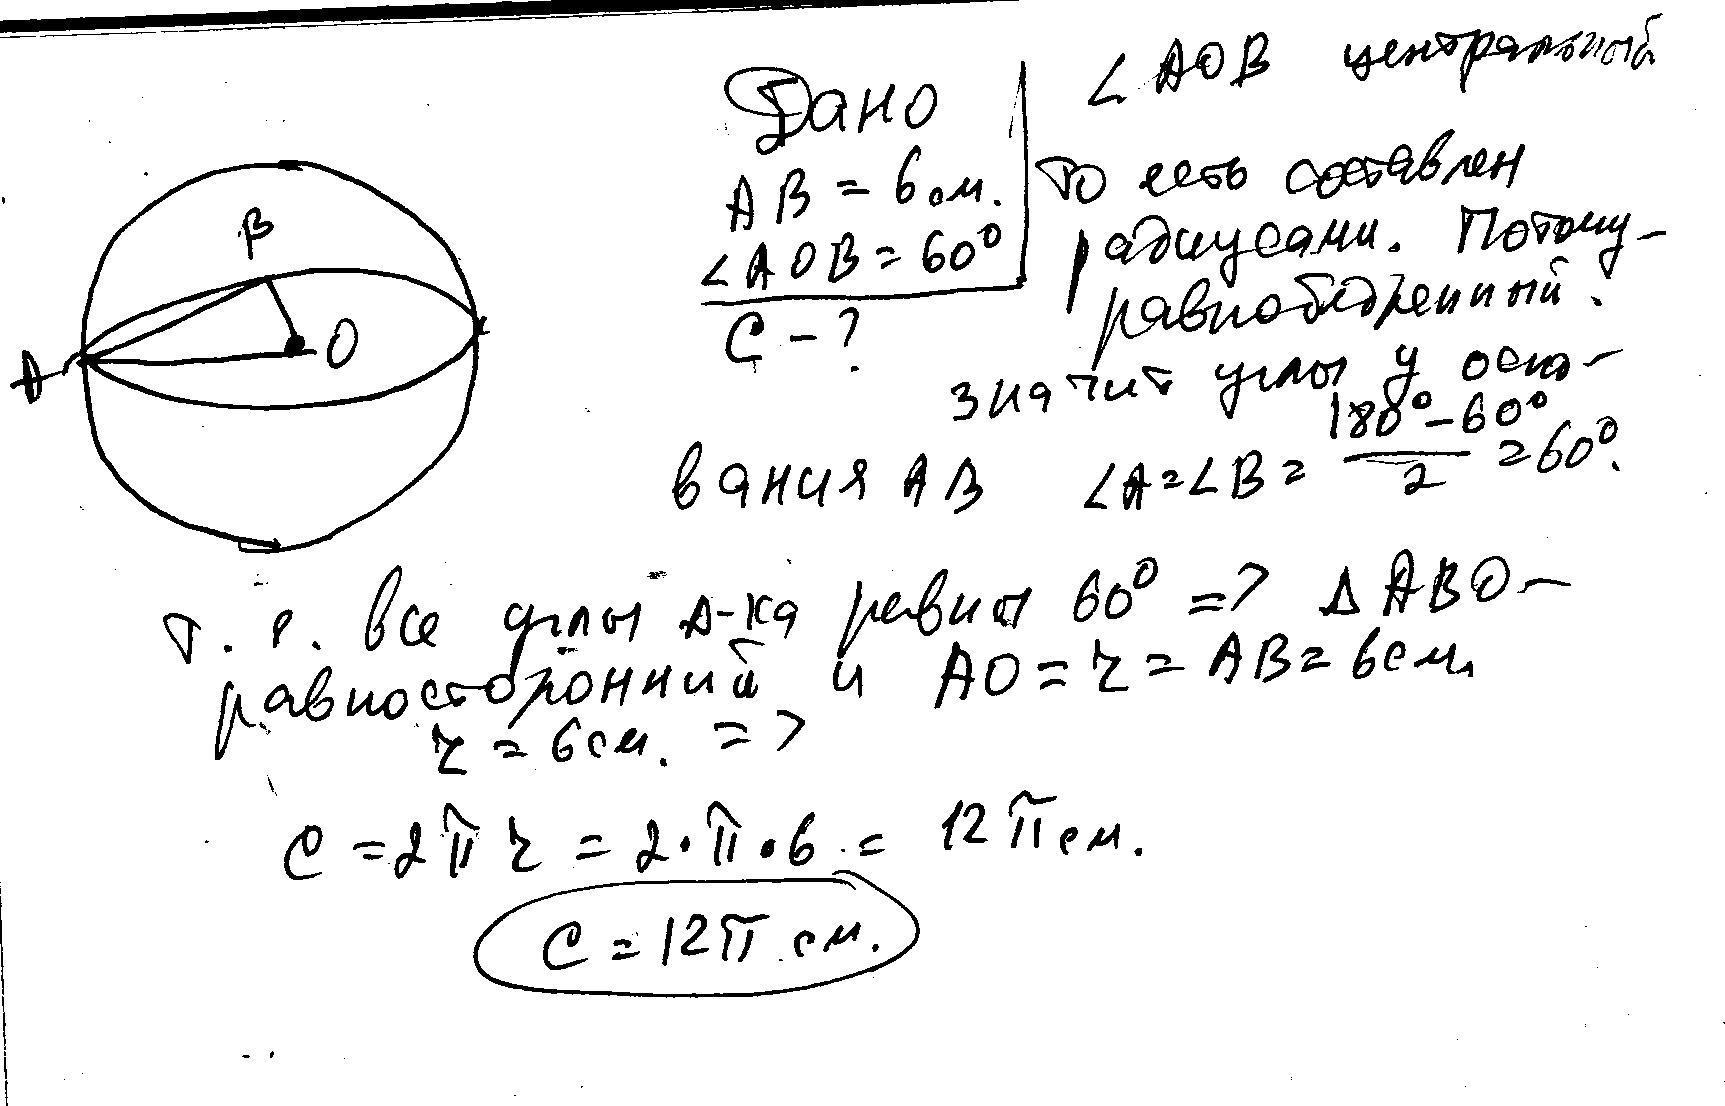 Дано
АВ = 6 см.
∠АОВ = 60⁰
С - ?
∠АОВ центральный
то есть составлен
радиусами. Потому-
равнобедренный.
значит углы у осно-
вания АВ ∠А=∠В= (180⁰-60⁰)/2 =60⁰.
В
А
О
т. е. все углы Δ-ка равны 60⁰ => Δ АВО-
равносторонний и АО = r = АВ = 6см.
r = 6см. =>
С = 2π r = 2·π·6 = 12π см.
С = 12π см.